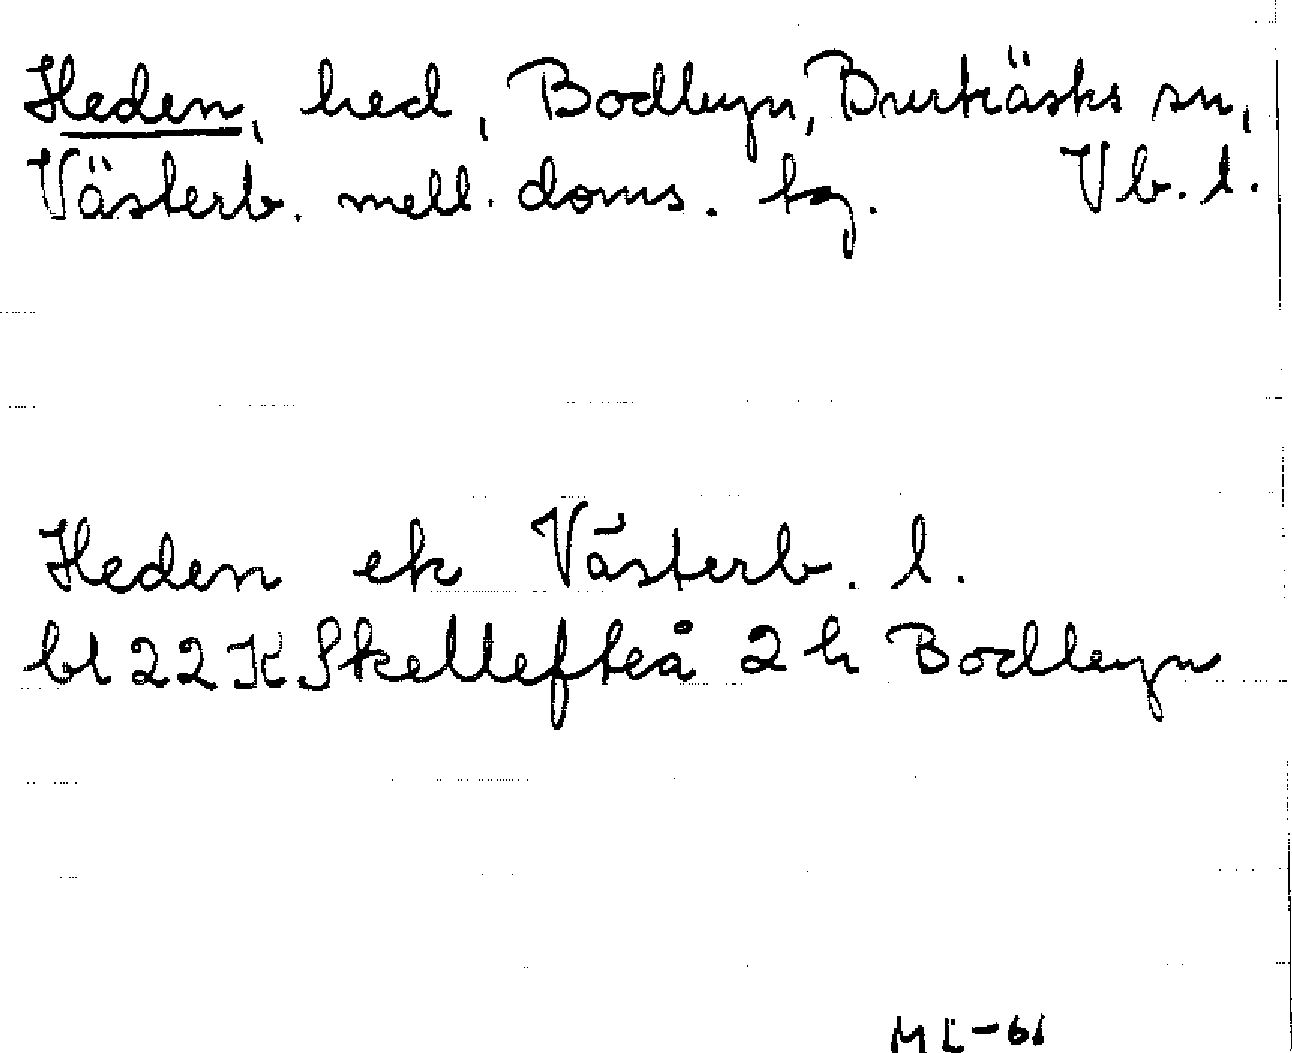 Heden, hed, Bodbyn, Burträsks sn,
Västerb. mell. doms. tg. Vb. l.
Heden ek Västerb. l.
bl 22K Skellefteå 2h Bodbyn
ML-61